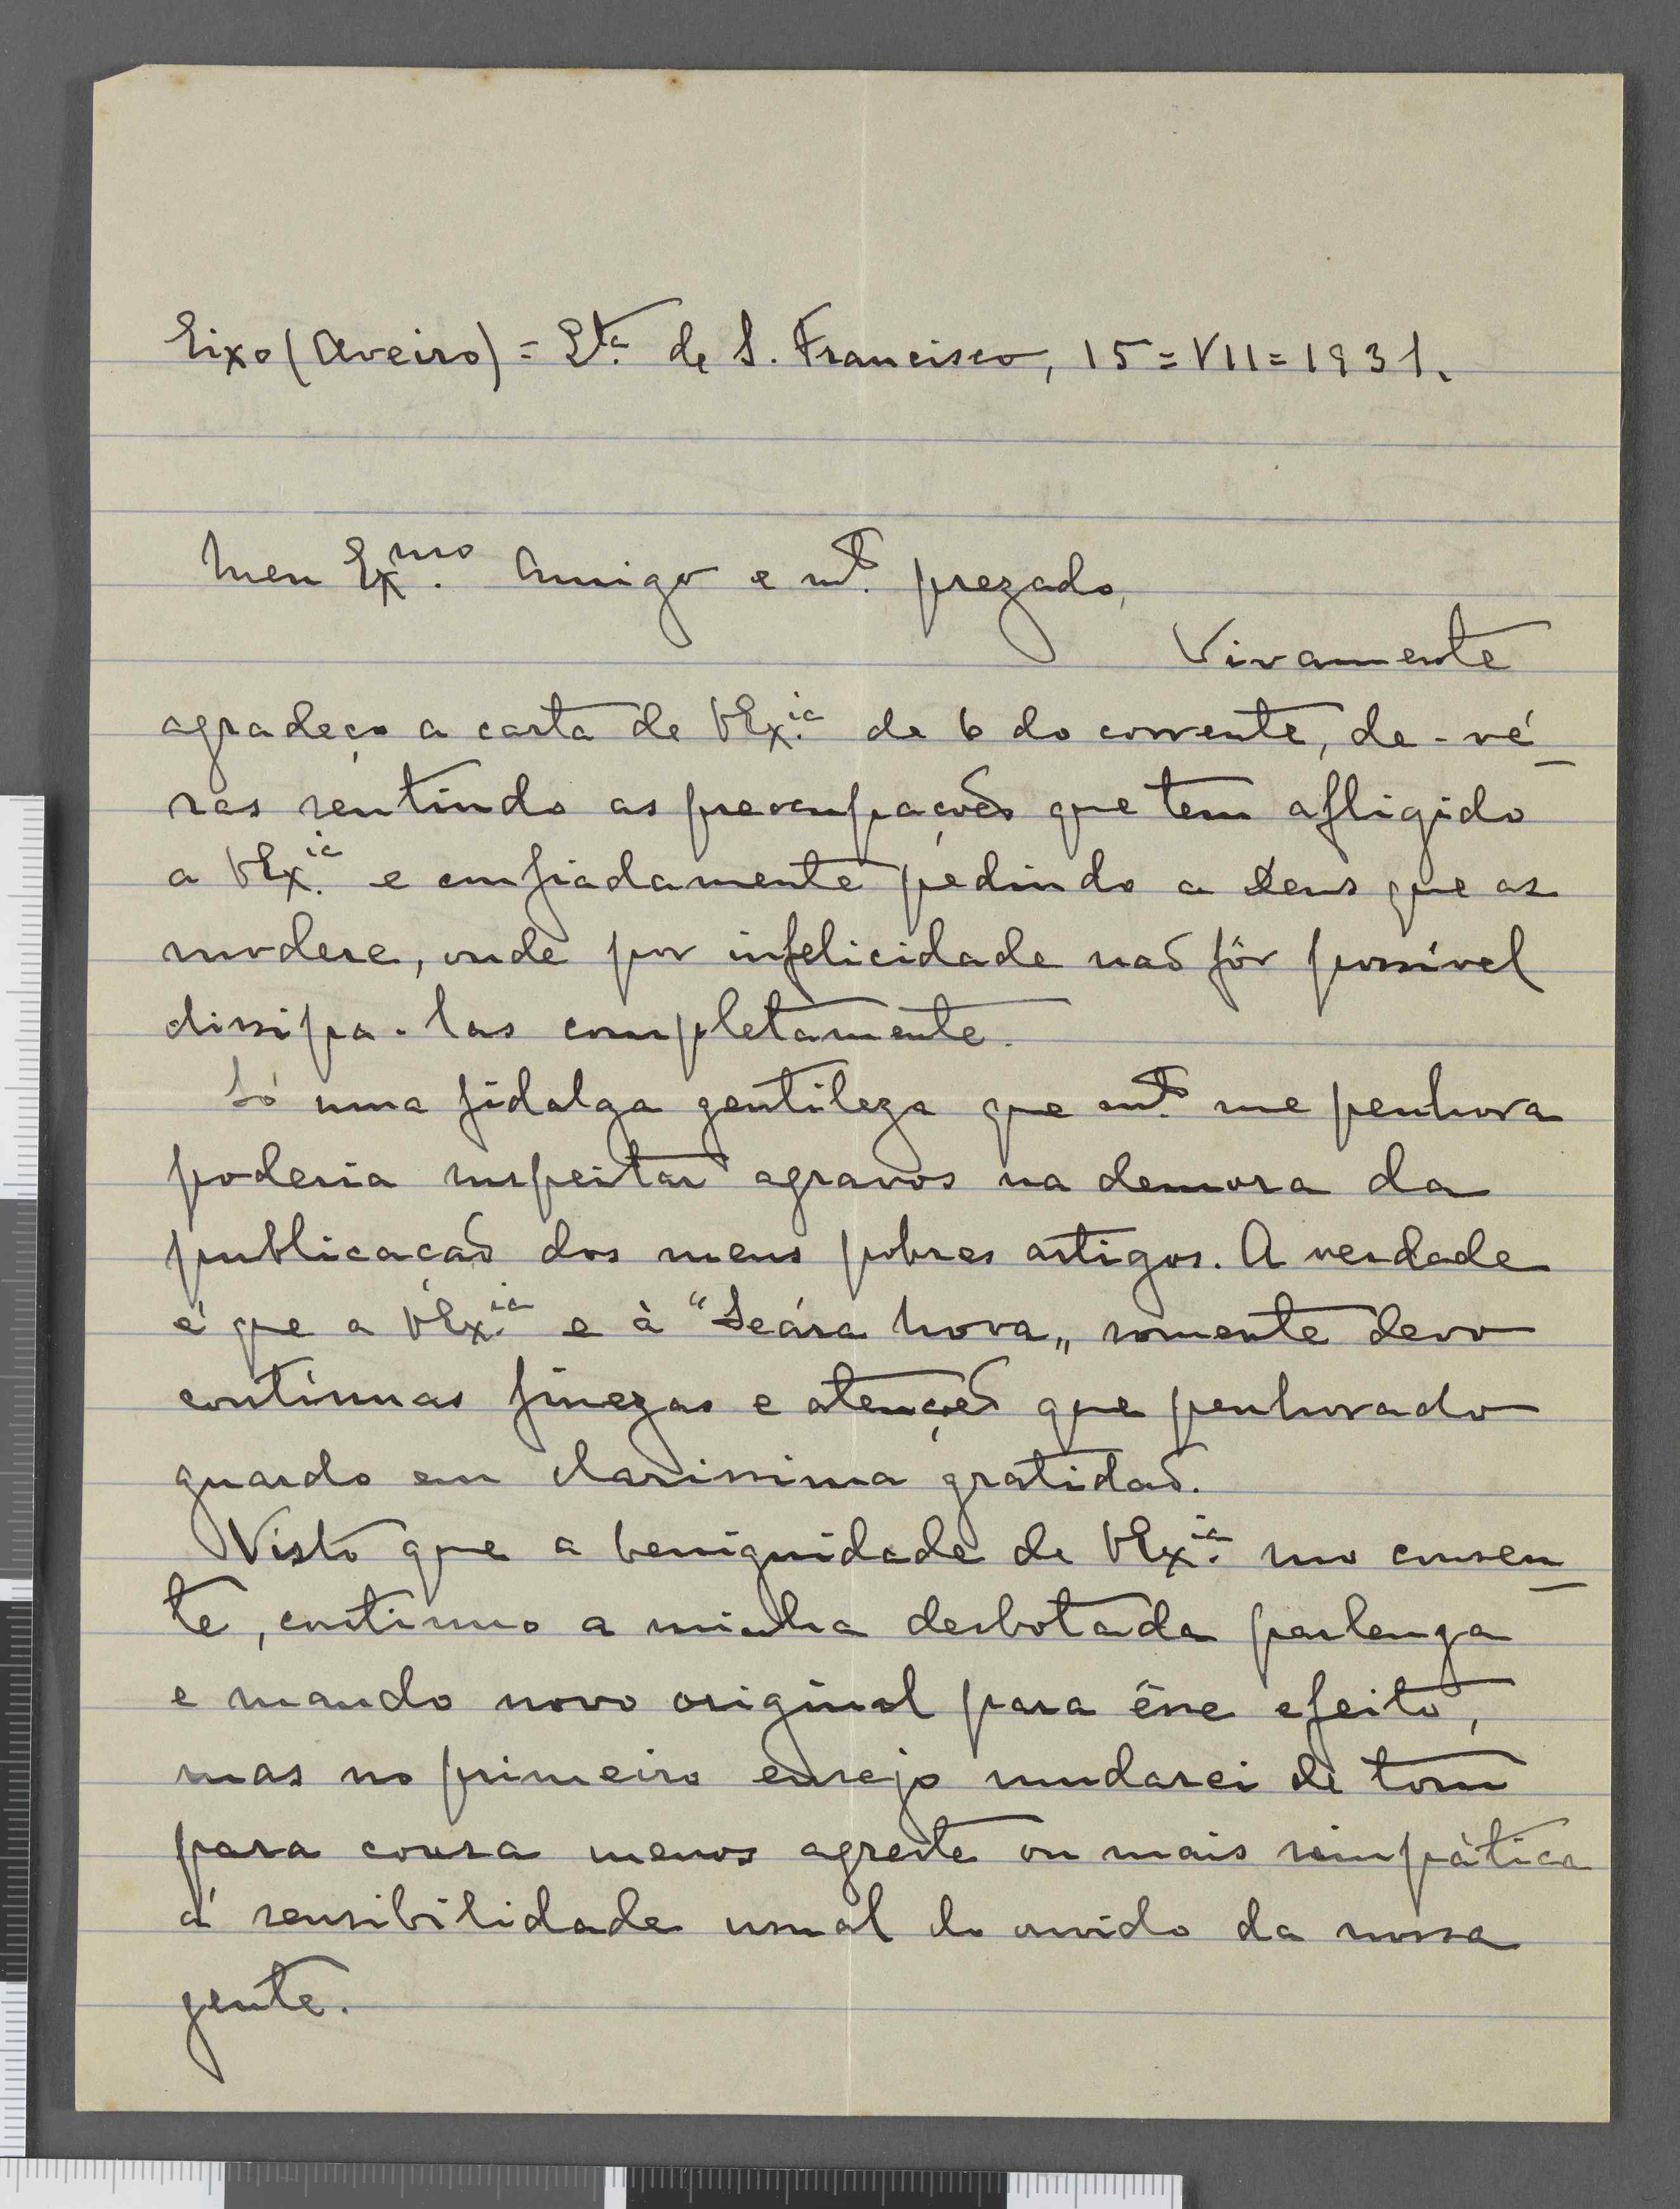 Eixo (Aveiro) = Qta. de S. Francisco, 15 = VII = 1931.
Meu Exmo. Amigo e mto. prezado,
Vivamente
agradeço a carta de V Ex.ia de 6 do corrente, de-vé-
ras sentindo as preocupações que tem afligido
a V Ex.ia e confiadamente pedindo a Deus que as
modere, onde por infelicidade não fôr possível
dissipa-las completamente.
Só uma fidalga gentileza que mto. me penhora
poderia suspeitar agravos na demora da
publicação dos meus pobres artigos. A verdade
é que a V Ex.ia e à "Seára Nova„ somente devo
contínuas finezas e atenções que penhorado
guardo em claríssima gratidão.
Visto que a benignidade de V Ex.ia mo consen-
te, continuo a minha desbotada parlenga
e mando novo original para êsse efeito,
mas no primeiro ensejo mudarei de tom
para cousa menos agreste ou mais simpática
á sensibilidade usual do ouvido da nossa
gente.